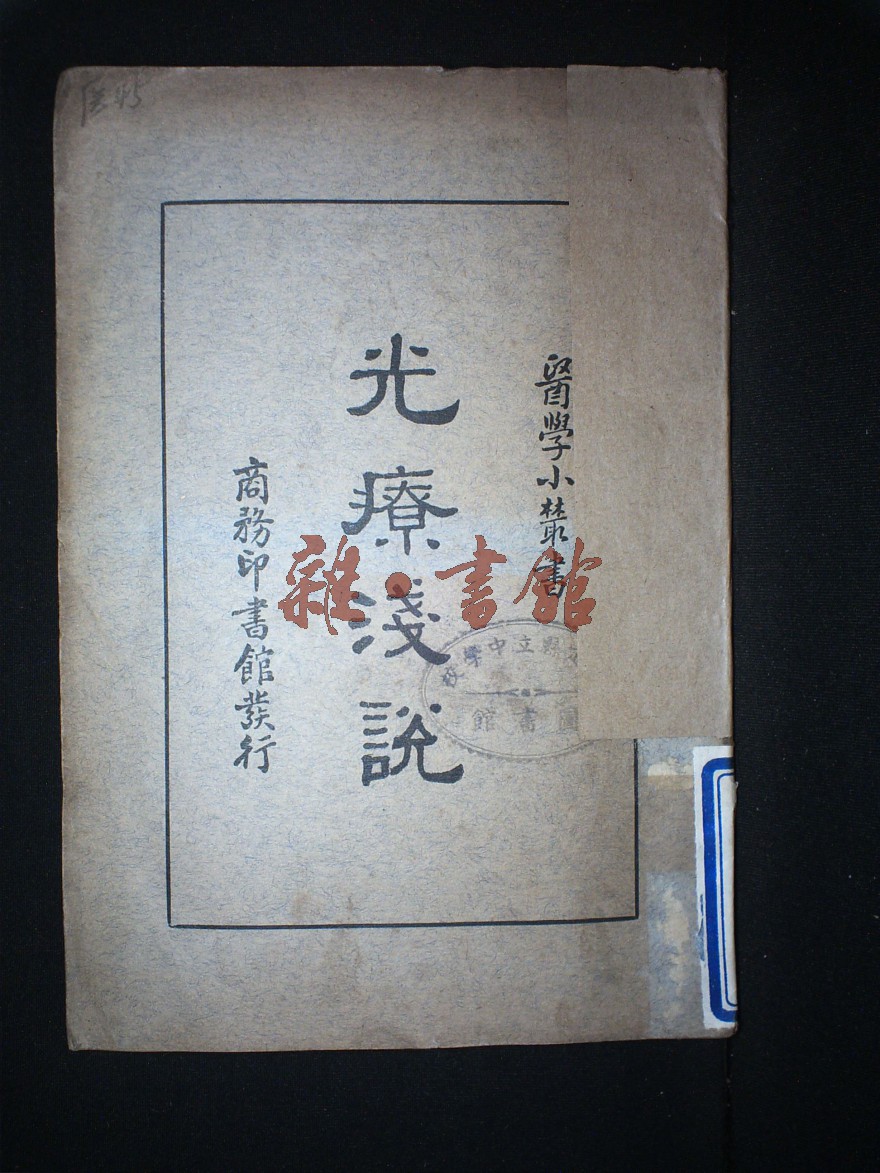 醫學小叢書
光療淺說
商務印書館發行
雜·書館
縣立中學校
圖書館